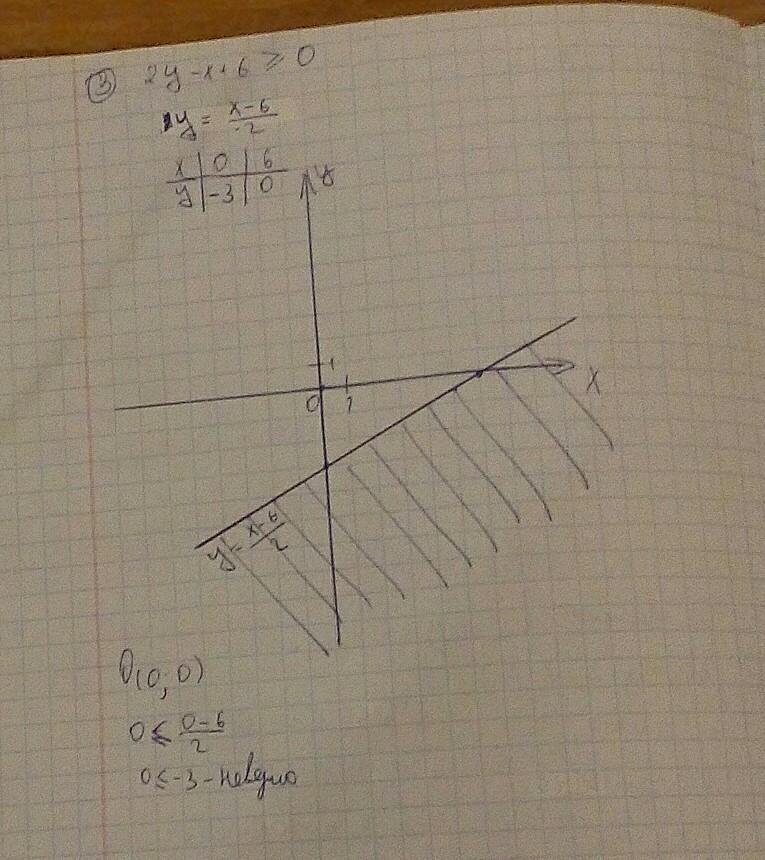 ③ 2y-x+6 ≥ 0
y = x-6/2
x | 0 | 6
y | -3 | 0
y
1
0 1 x
y = x-6/2
O(0; 0)
0 ≤ 0-6/2
0 ≤ -3 - неверно